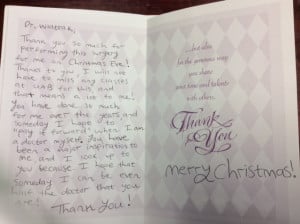 Dr.
Thank you so much for
performing this surgery
for me on Christmas Eve!
Thanks to you, I will not
have to miss any classes
at UAB for this and
that means a lot to me!
You have done so much
for me over the years and
someday I hope to
"pay it forward" when I am
a doctor myself. You have
been a major inspiration to
me and I look up to
you because I hope that
someday I can be even
half the doctor that you
are! Thank You!
...but also
for the generous way
you share
your time and talents
with others.
Thank
You
Merry Christmas!